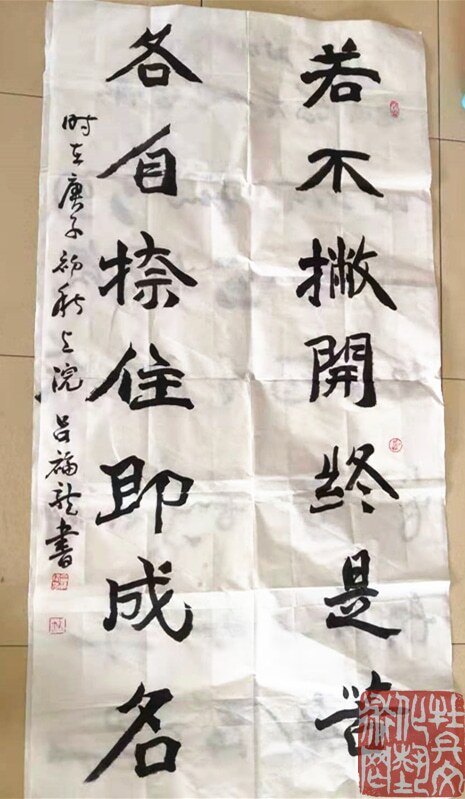 若不撇開終是苦
各自捺住即成名
时在庚子初秋上浣 吕福龙書